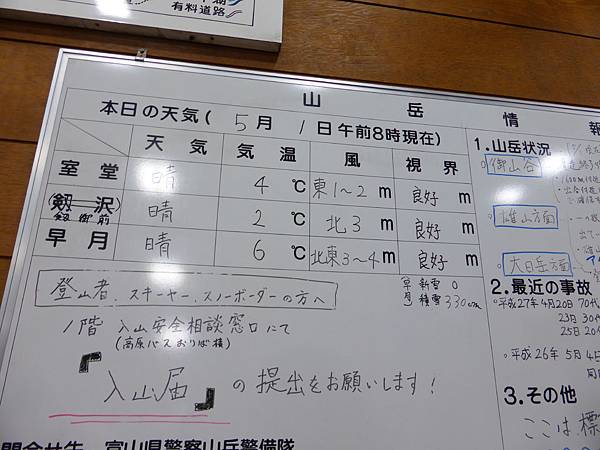 有料道路
山岳情報
本日の天気(5月1日午前8時現在)
天気 気温 風 視界
室堂 晴 4℃ 東1~2m 良好m
(剱沢) 晴 2℃ 北3m 良好m
剱御前
早月 晴 6℃ 北東3~4m 良好m
早月 新雪 0
積雪 330cm
登山者、スキーヤー、スノーボーダーの方へ
1階 入山安全相談窓口にて
(高原バスおりば横)
『入山届』の提出をお願いします!
問合せ先 富山県警察山岳警備隊
1.山岳状況
御山谷
雄山方面
大日岳方面
2.最近の事故
平成27年4月20日 70代
23日 30代
25日 20
平成26年 5月4日
3.その他
ここは標